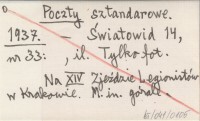 D
Poczty sztandarowe.
1937. – Światowid 14,
nr 33: , il. Tylko fot.
Na XIV Zjeździe Legionistów
w Krakowie. M. in. górali.